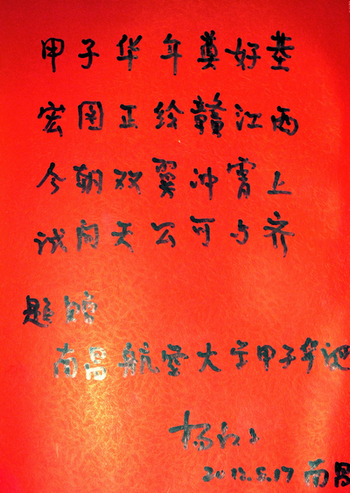 甲子华年奠好基
宏图正绘赣江西
今朝双翼冲霄上
试问天公可与齐
题赠
南昌航空大学甲子华诞
2012.5.17 南昌